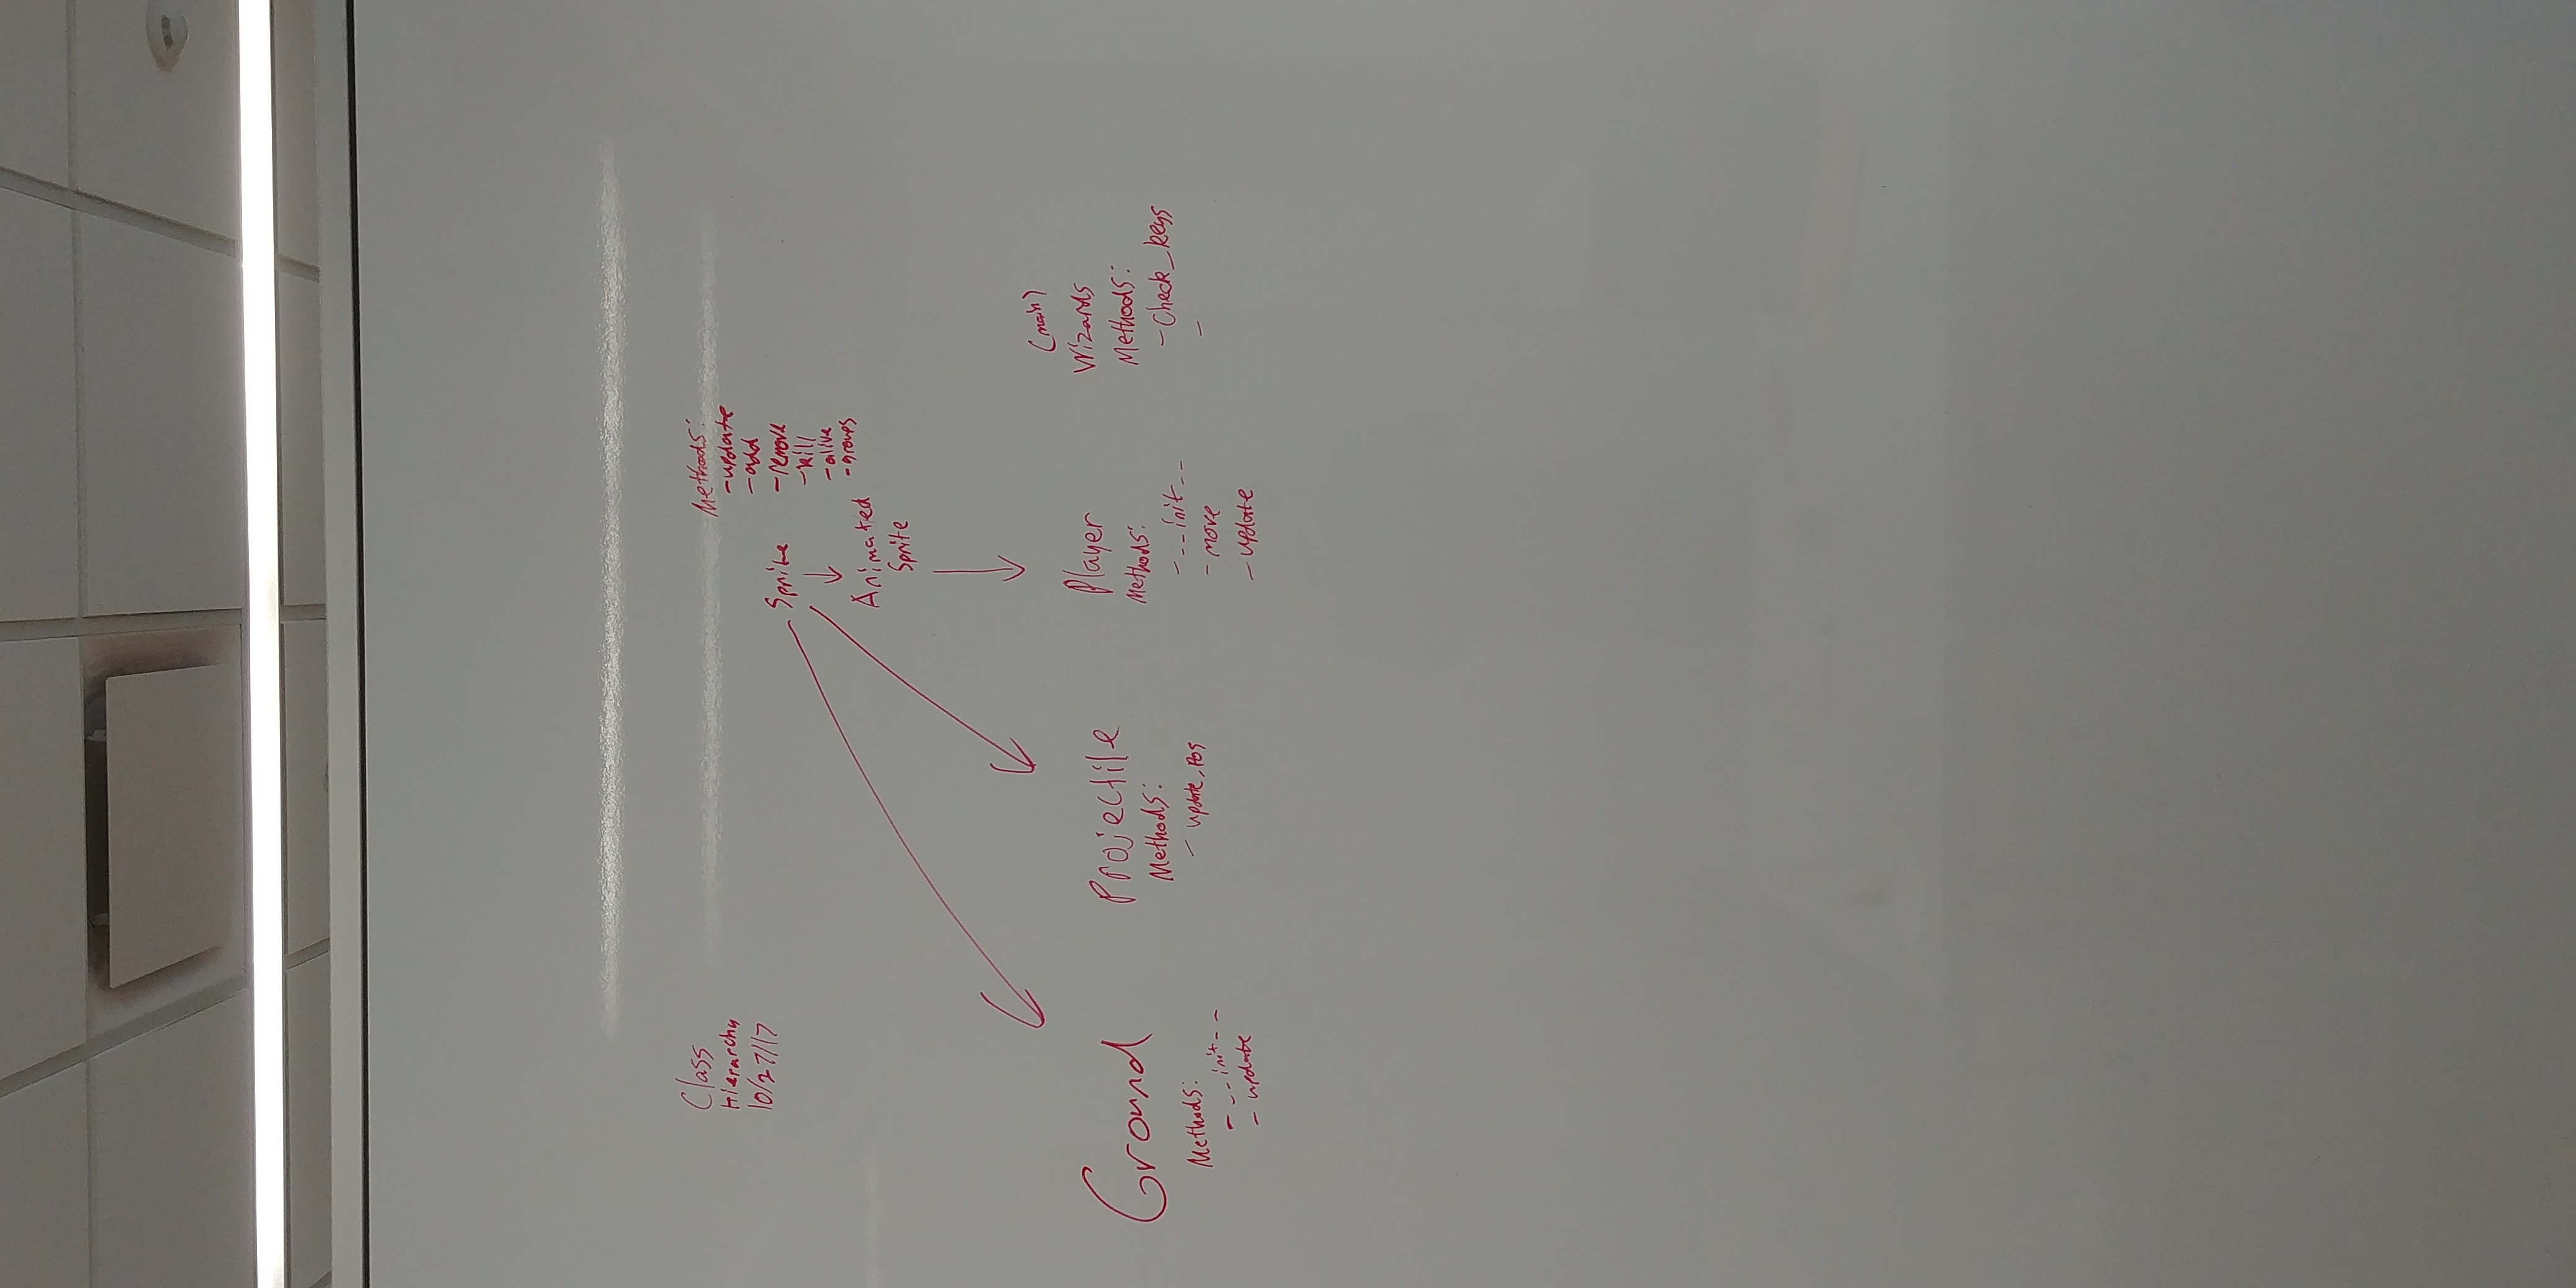 Class
Hierarchy
10/27/17
Methods:
-update
-add
-remove
-kill
-alive
-groups
Sprite
Animated
Sprite
Ground
Methods:
- __init__
- update
Projectile
Methods:
- update_pos
Player
Methods:
- __init__
- move
- update
(main)
Wizards
Methods:
-Check_keys
-